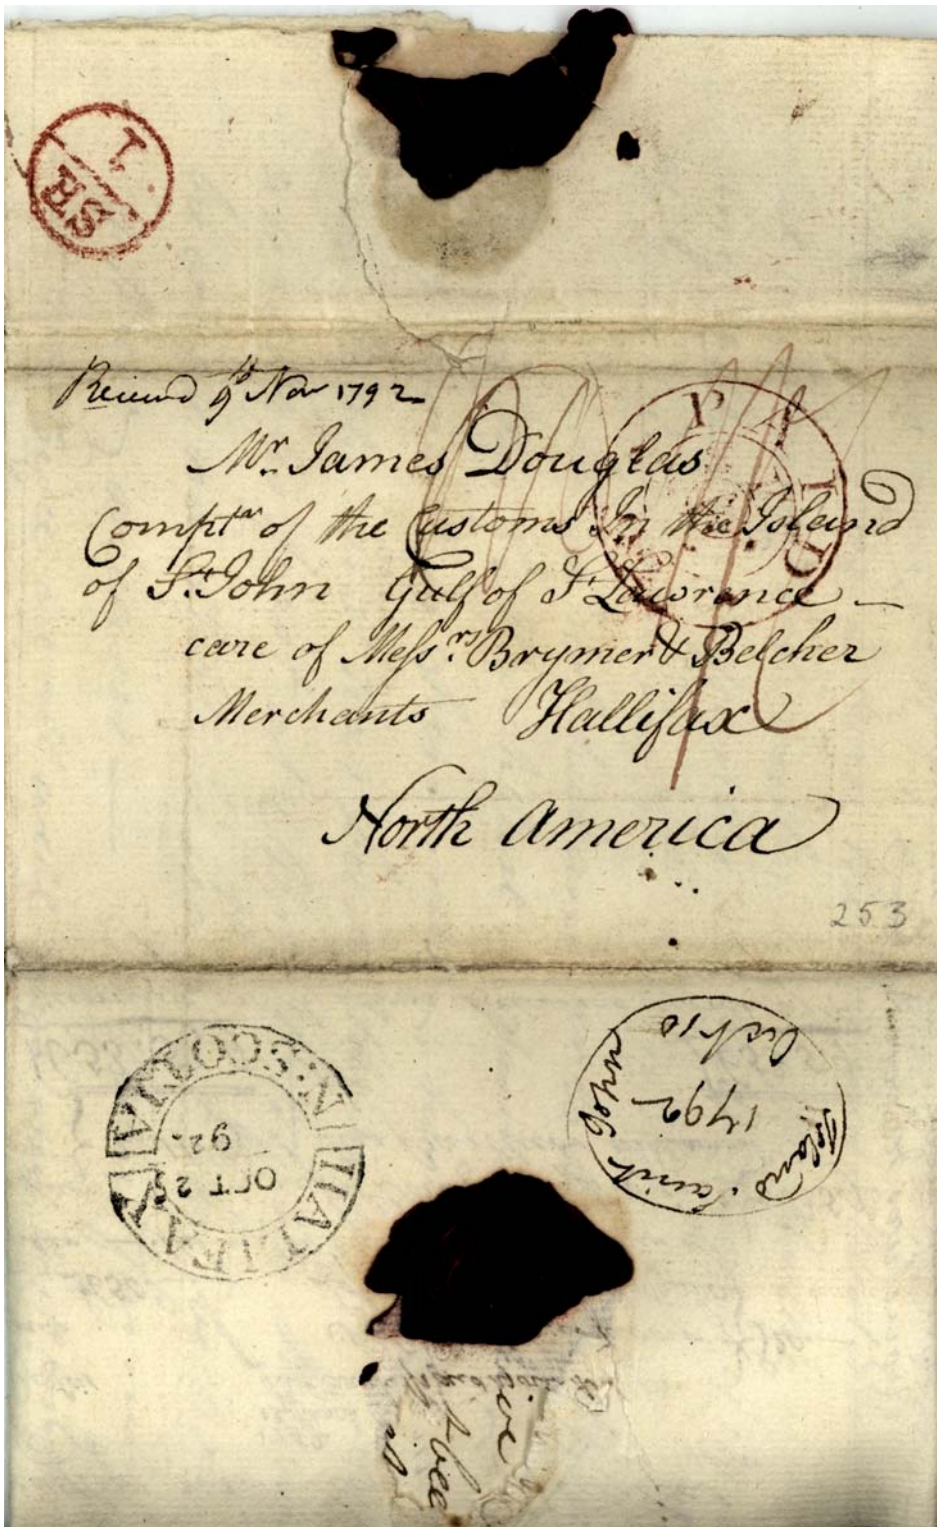 1
SE
Received 9th Nov 1792
PAID
Mr. James Douglas
Comptr of the Customs In the Island
of St. John Gulf of St Lawrence —
care of Messrs. Brymer & Belcher
Merchants Hallifax
North America
253
HALIFAX
N: SCOTIA
OCT 2
92
Island Saint John
1792
Oct 10